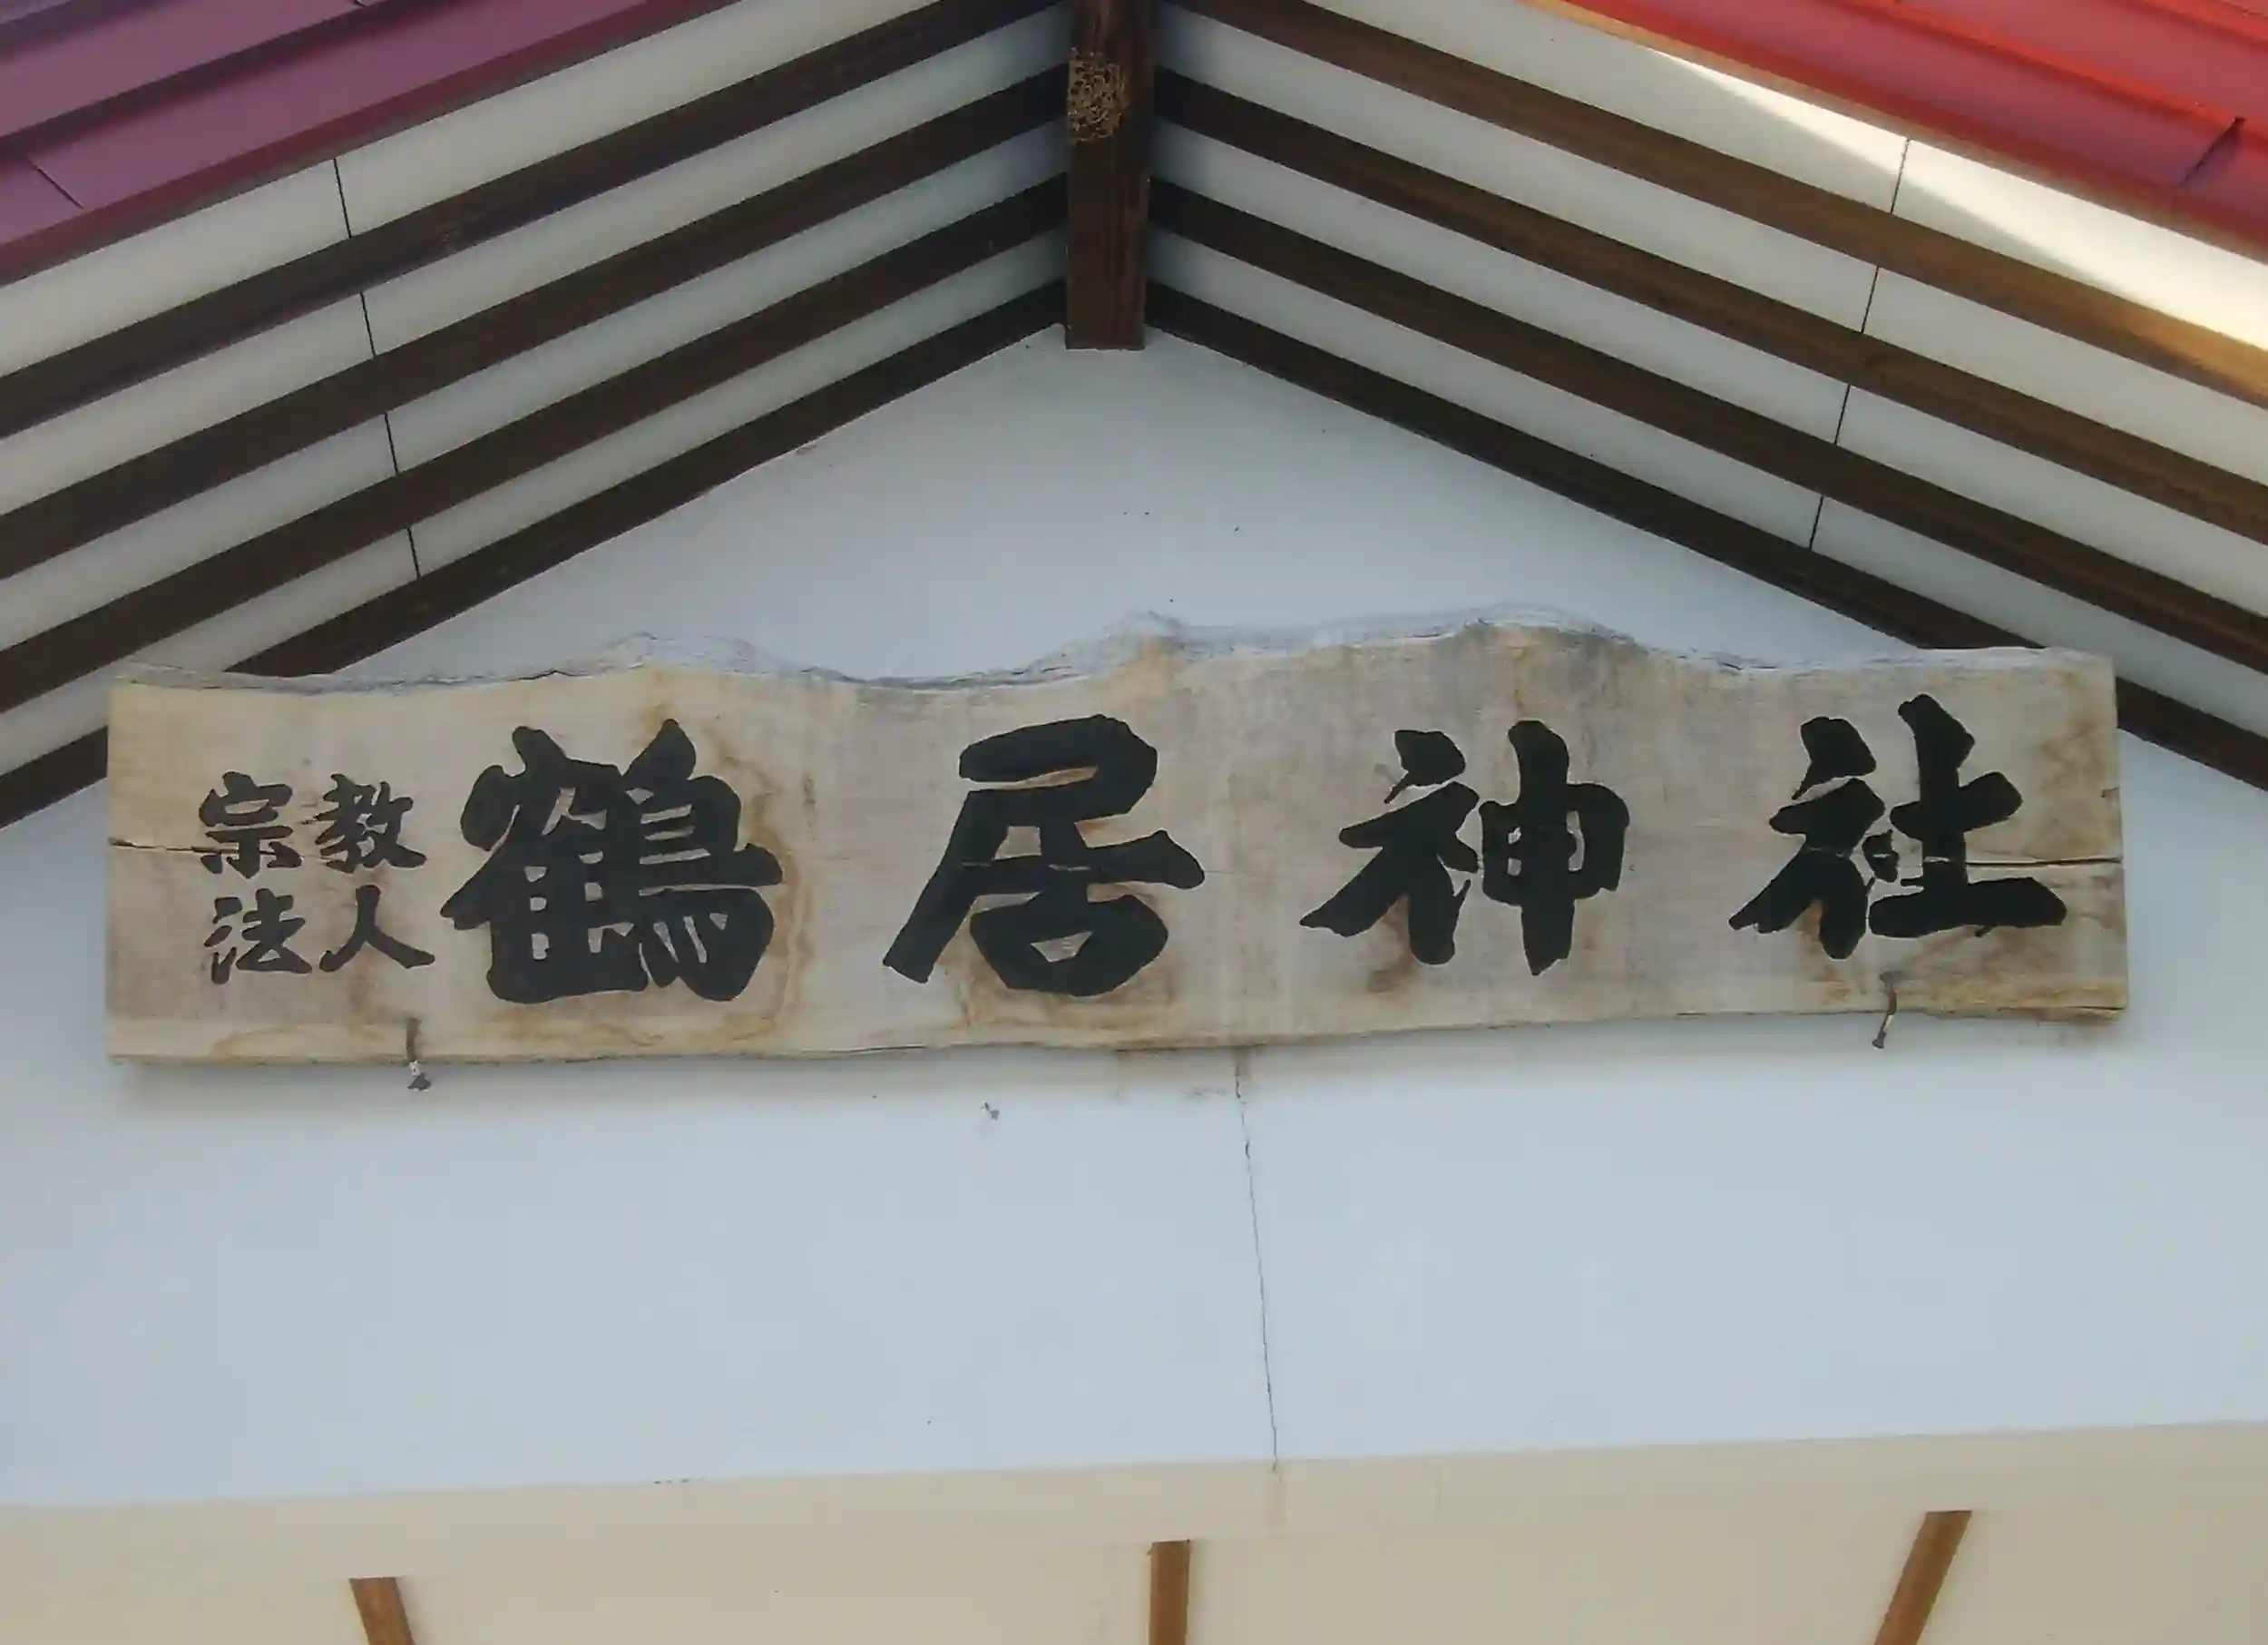 宗教
法人
鶴居神社